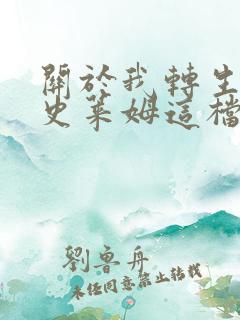 關於我轉生
史萊姆這檔
劉魯舟
未經同意禁止轉載